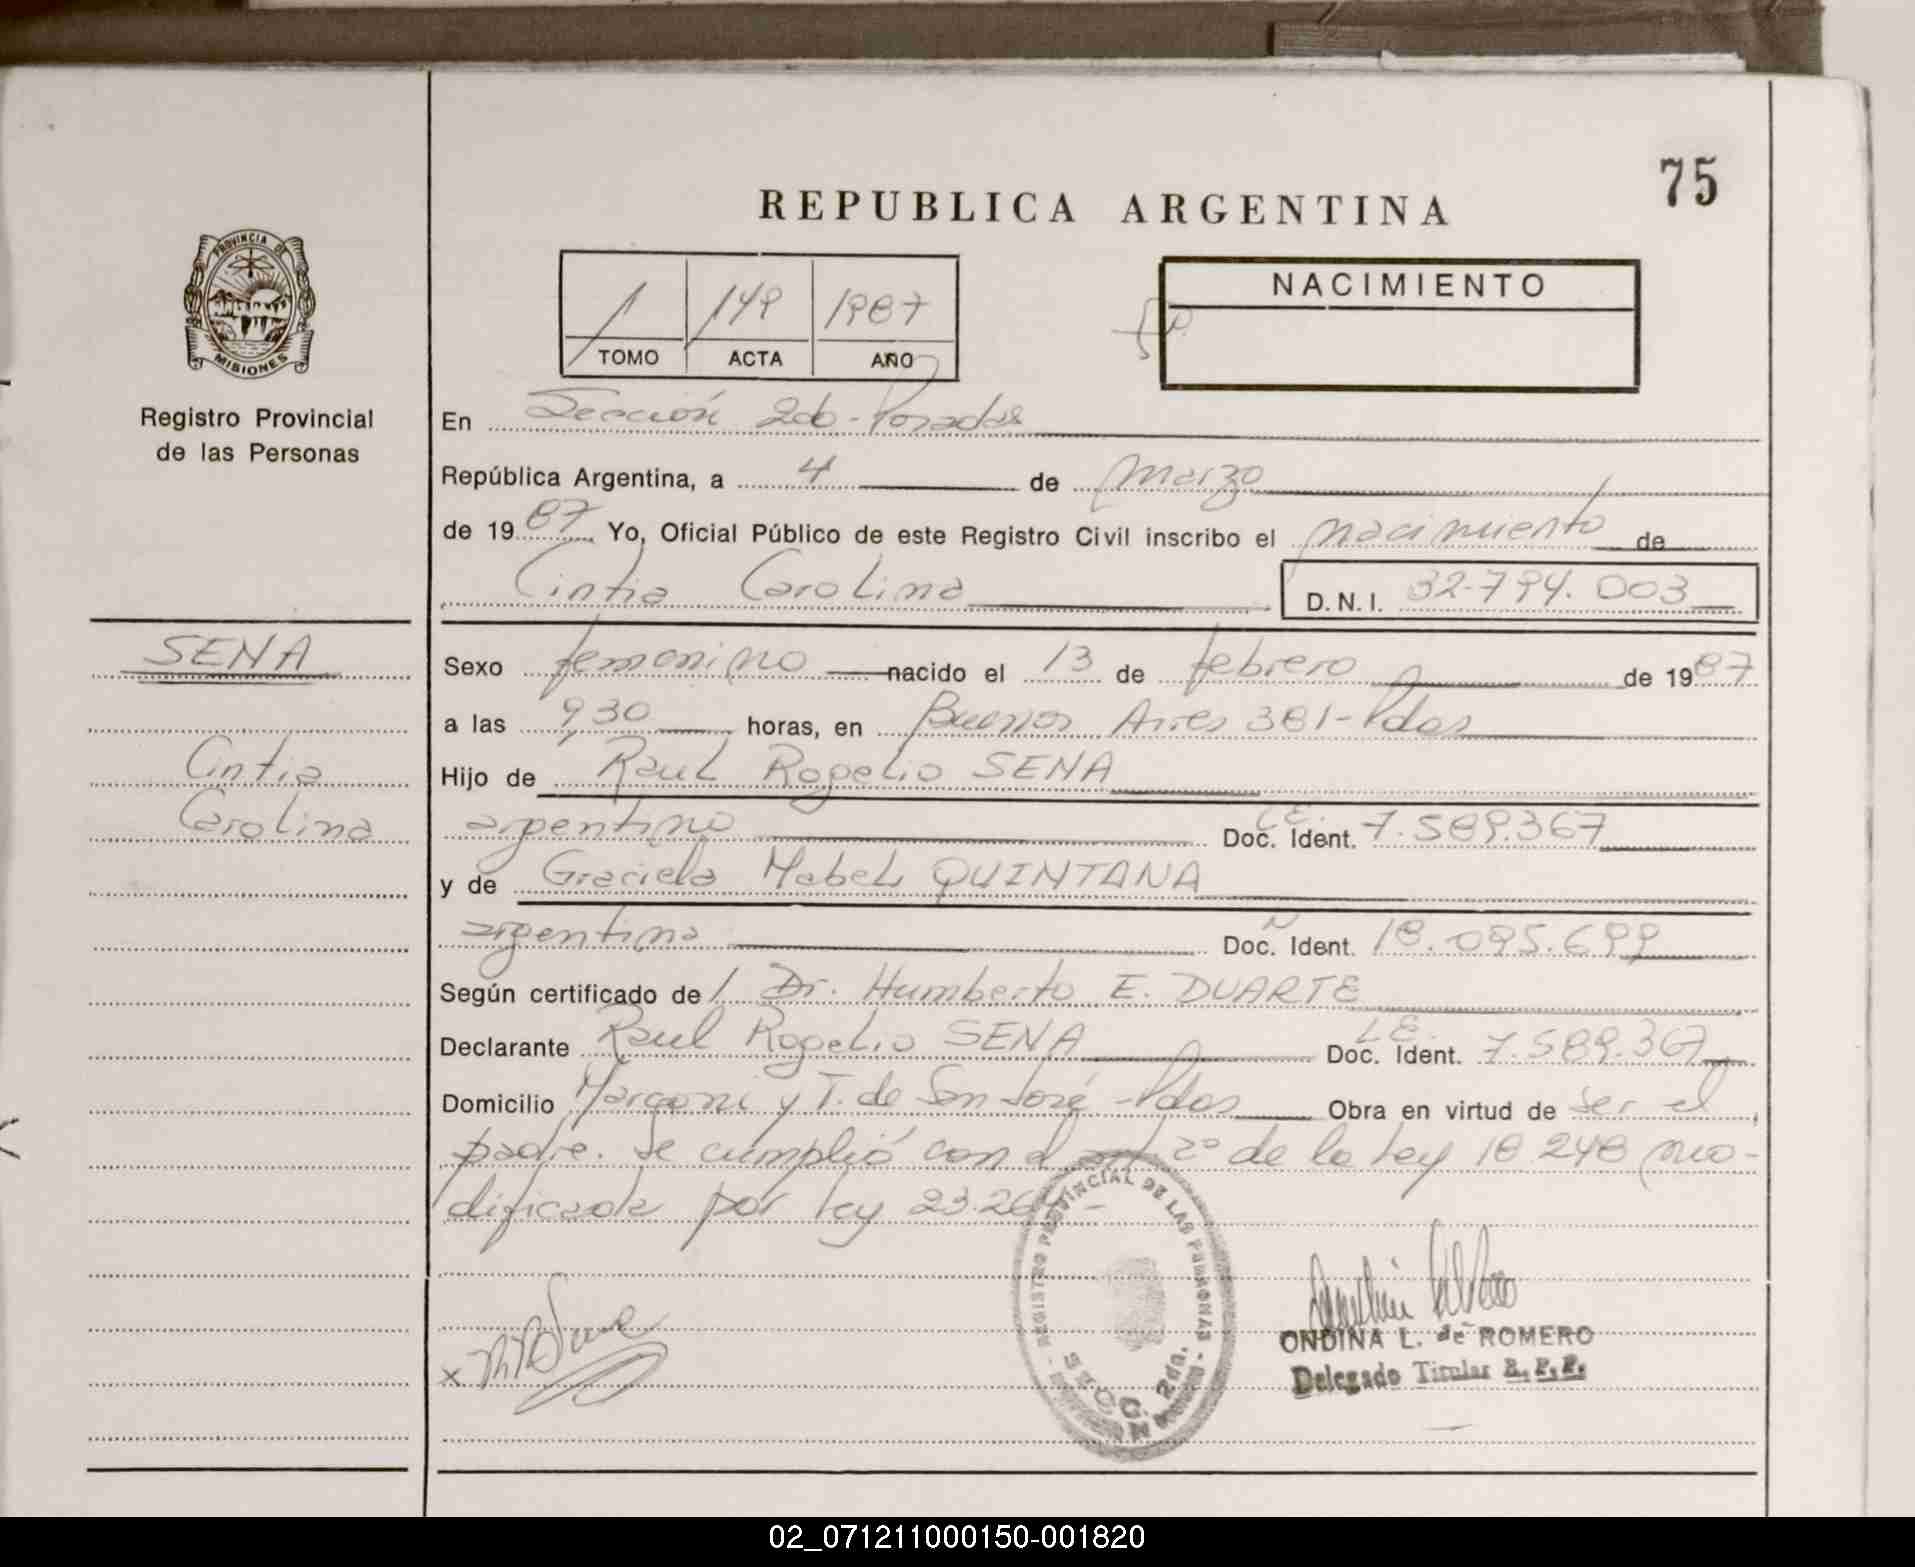 75
REPUBLICA ARGENTINA
PROVINCIA DE
MISIONES
Registro Provincial
de las Personas
1 149 1987
TOMO ACTA AÑO
NACIMIENTO
En Sección 2da - Posadas
República Argentina, a 4 de Marzo
de 1987 Yo, Oficial Público de este Registro Civil inscribo el nacimiento de
Cintia Carolina D.N.I. 32.794.003
SENA
Cintia
Carolina
Sexo femenino nacido el 13 de febrero de 1987
a las 9,30 horas, en Buenos Aires 381 - Pdas
Hijo de Raul Rogelio SENA
argentino Doc. Ident. L.E. 7.589.367
y de Graciela Mabel QUINTANA
argentina Doc. Ident. 18.095.699
Según certificado de Dr. Humberto E. DUARTE
Declarante Raul Rogelio SENA Doc. Ident. L.E. 7.589.367
Domicilio Marconi y T. de San José - Pdas Obra en virtud de ser el
padre. Se cumplió con el art 2º de la Ley 18.248 mo-
dificada por ley 23.264 -
REGISTRO PROVINCIAL DE LAS PERSONAS
SECC. 2da.
ONDINA L. de ROMERO
Delegado Titular R.P.P.
02_071211000150-001820